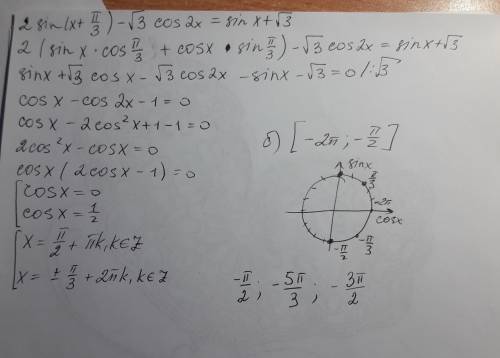 2 sin(x + π/3) − √3 cos 2x = sin x + √3
2 (sin x · cos π/3 + cos x · sin π/3) − √3 cos 2x = sin x + √3
sin x + √3 cos x − √3 cos 2x − sin x − √3 = 0 /: √3
cos x − cos 2x − 1 = 0
cos x − 2cos²x + 1 − 1 = 0
2cos²x − cos x = 0
cos x (2cos x − 1) = 0
[ cos x = 0
cos x = 1/2
[ x = π/2 + πk, k ∈ Z
x = ± π/3 + 2πk, k ∈ Z
б) [−2π; −π/2]
sin x
π/3
−2π
cos x
−π/3
−π/2
−π/2 ; −5π/3 ; −3π/2